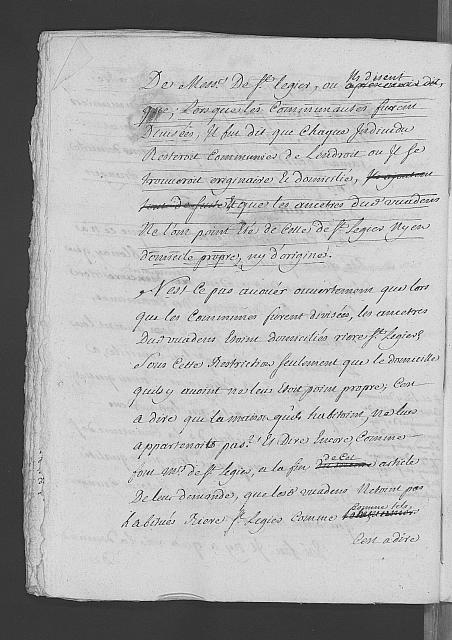 De Mess.rs De S.t Legier, ou Ils disent
que; Lorsque les Communautés furent
Divisées, Il fut dit que Chaque Individu
Resteroit Communier de Lendroit ou Il se
trouveroit originaire Et domicilié,
Et que les ancetres du S.r Ne
l'ont point Eté de Cette de S.t Legier Ny en
Domicile propre, ny d'origine.
N'est Ce pas avouer ouvertement que lors
que les Communes furent divisées, les ancetres
Du S.r Etoint domiciliés riere S.t Legier,
Sous Cette Restriction Seulement que le domicille
quils y avoint ne leur Etoit point propre; C'est
a dire que la maison quils habitoint, Ne leur
appartenoit pas? Et Dire Encore Comme
font M.rs de S.t Legier, a la fin de Cet article
De leur demande, que les Netoint pas
habitués Riere S.t Legier Comme Comme tels
C'est a dire